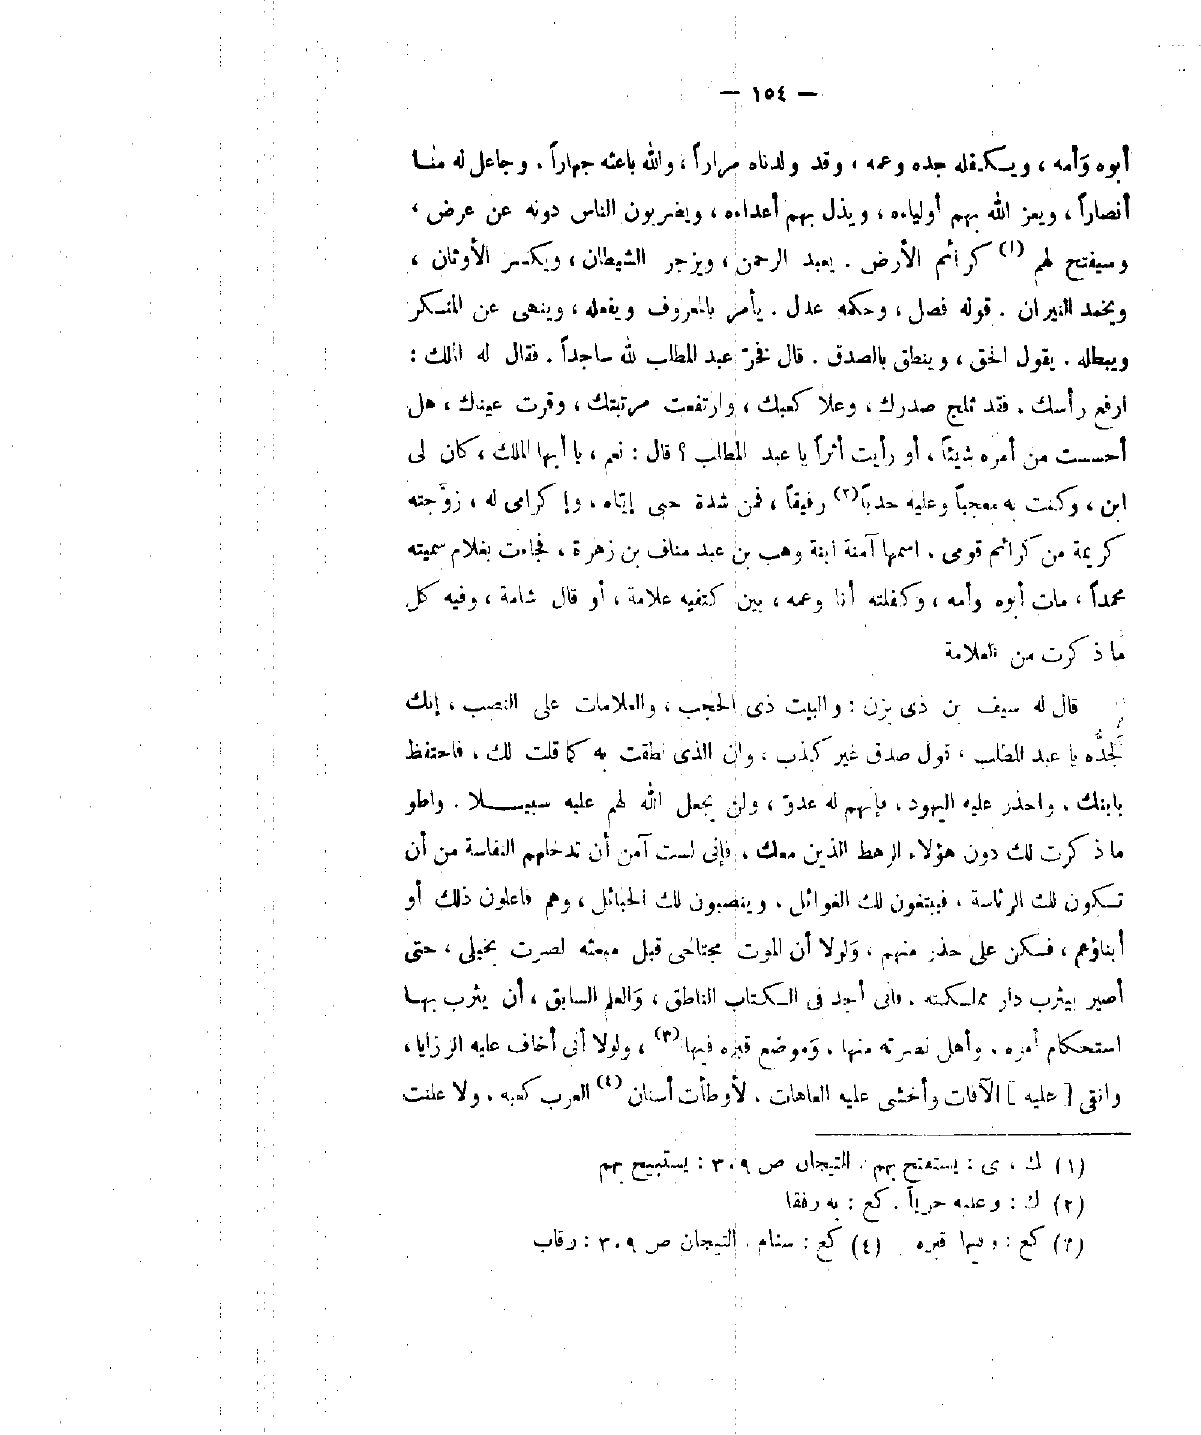 — ١٥٤ —
أبوه وَأمه ، ويسكيفله جده وعمه ، وقد ولدناه مراراً ، والله باعثه جهاراً . وجاعل له منا
أنصاراً ، ويعز الله بهم أولياءه ، ويذل بهم أعداءه ، ويضربون الناس دونه عن عرض ،
وسيفتح لهم (١) كرائم الأرض . يعبد الرحمن ، ويزجر الشيطان ، ويكسر الأوثان ،
ويخمد النيران . قوله فصل ، وحكمه عدل . يأمر بالمعروف ويفعله ، وينهى عن المنكر
ويبطله . يقول الحق ، وينطق بالصدق . قال فخرّ عبد المطلب لله ساجداً . فقال له الملك :
ارفع رأسك . فقد ثلج صدرك ، وعلا كعبك ، وارتفعت مرتبتك ، وقرت عينك ، هل
أحسست من أمره شيئاً ، أو رأيت أثراً يا عبد المطلب ؟ قال : نعم ، يا أيها الملك ، كان لى
ابن ، وكنت به معجباً وعليه حدباً (٢) رفيقاً ، فمن شدة حبى إيّاه . وإكرامى له ، زوّجته
كريمة من كرائم قومى . اسمها آمنة ابنة وهب بن عبد مناف بن زهرة ، فجاءت بغلام سميته
محمداً ، مات أبوه وأمه ، وكفلته أنا وعمه ، بين كتفيه علامة ، أو قال شامة ، وفيه كل
ما ذكرت من العلامة
قال له سيف بن ذى يزن : والبيت ذى الحجب ، والعلامات على النصب ، إنك
لجدُّه يا عبد المطلب ، قول صدق غير كذب . وإن الذى نطقت به كما قلت لك . فاحتفظ
بابنك . واحذر عليه اليهود . فإنهم له عدوّ ، ولن يجعل الله لهم عليه سبيلا . واطو
ما ذكرت لك دون هؤلاء الرهط الذين معك ، فإنى لست آمن أن تدخلهم النفاسة من أن
تكون لك الرئاسة ، فيبتغون لك الغوائل . وينصبون لك الحبائل ، وهم فاعلون ذلك أو
أبناؤهم ، فكن على حذر منهم ، وَلولا أن الموت مجتاحى قبل مبعثه لصرت بخيلى ، حتى
أصير بيثرب دار مملكته . فانى أجد فى الكتاب الناطق ، وَالعلم السابق ، أن يثرب بها
استحكام أمره . وأهل نصرته منها . وَموضع قبره فيها (٣) ، ولولا أنى أخاف عليه الرزايا ،
واتقى [ عليه ] الآفات وأخشى عليه العاهات . لأوطأت أسنان (٤) العرب كعبه . ولا علنت
(١) ك ، ى : يستفتح بهم . التيجان ص ٣٠٩ : يستبيح بهم
(٢) ك : وعليه حرياً . كع : به رفقا
(٣) كع : وفيها قبره . (٤) كع : سنام . التيجان ص ٣٠٩ : رقاب